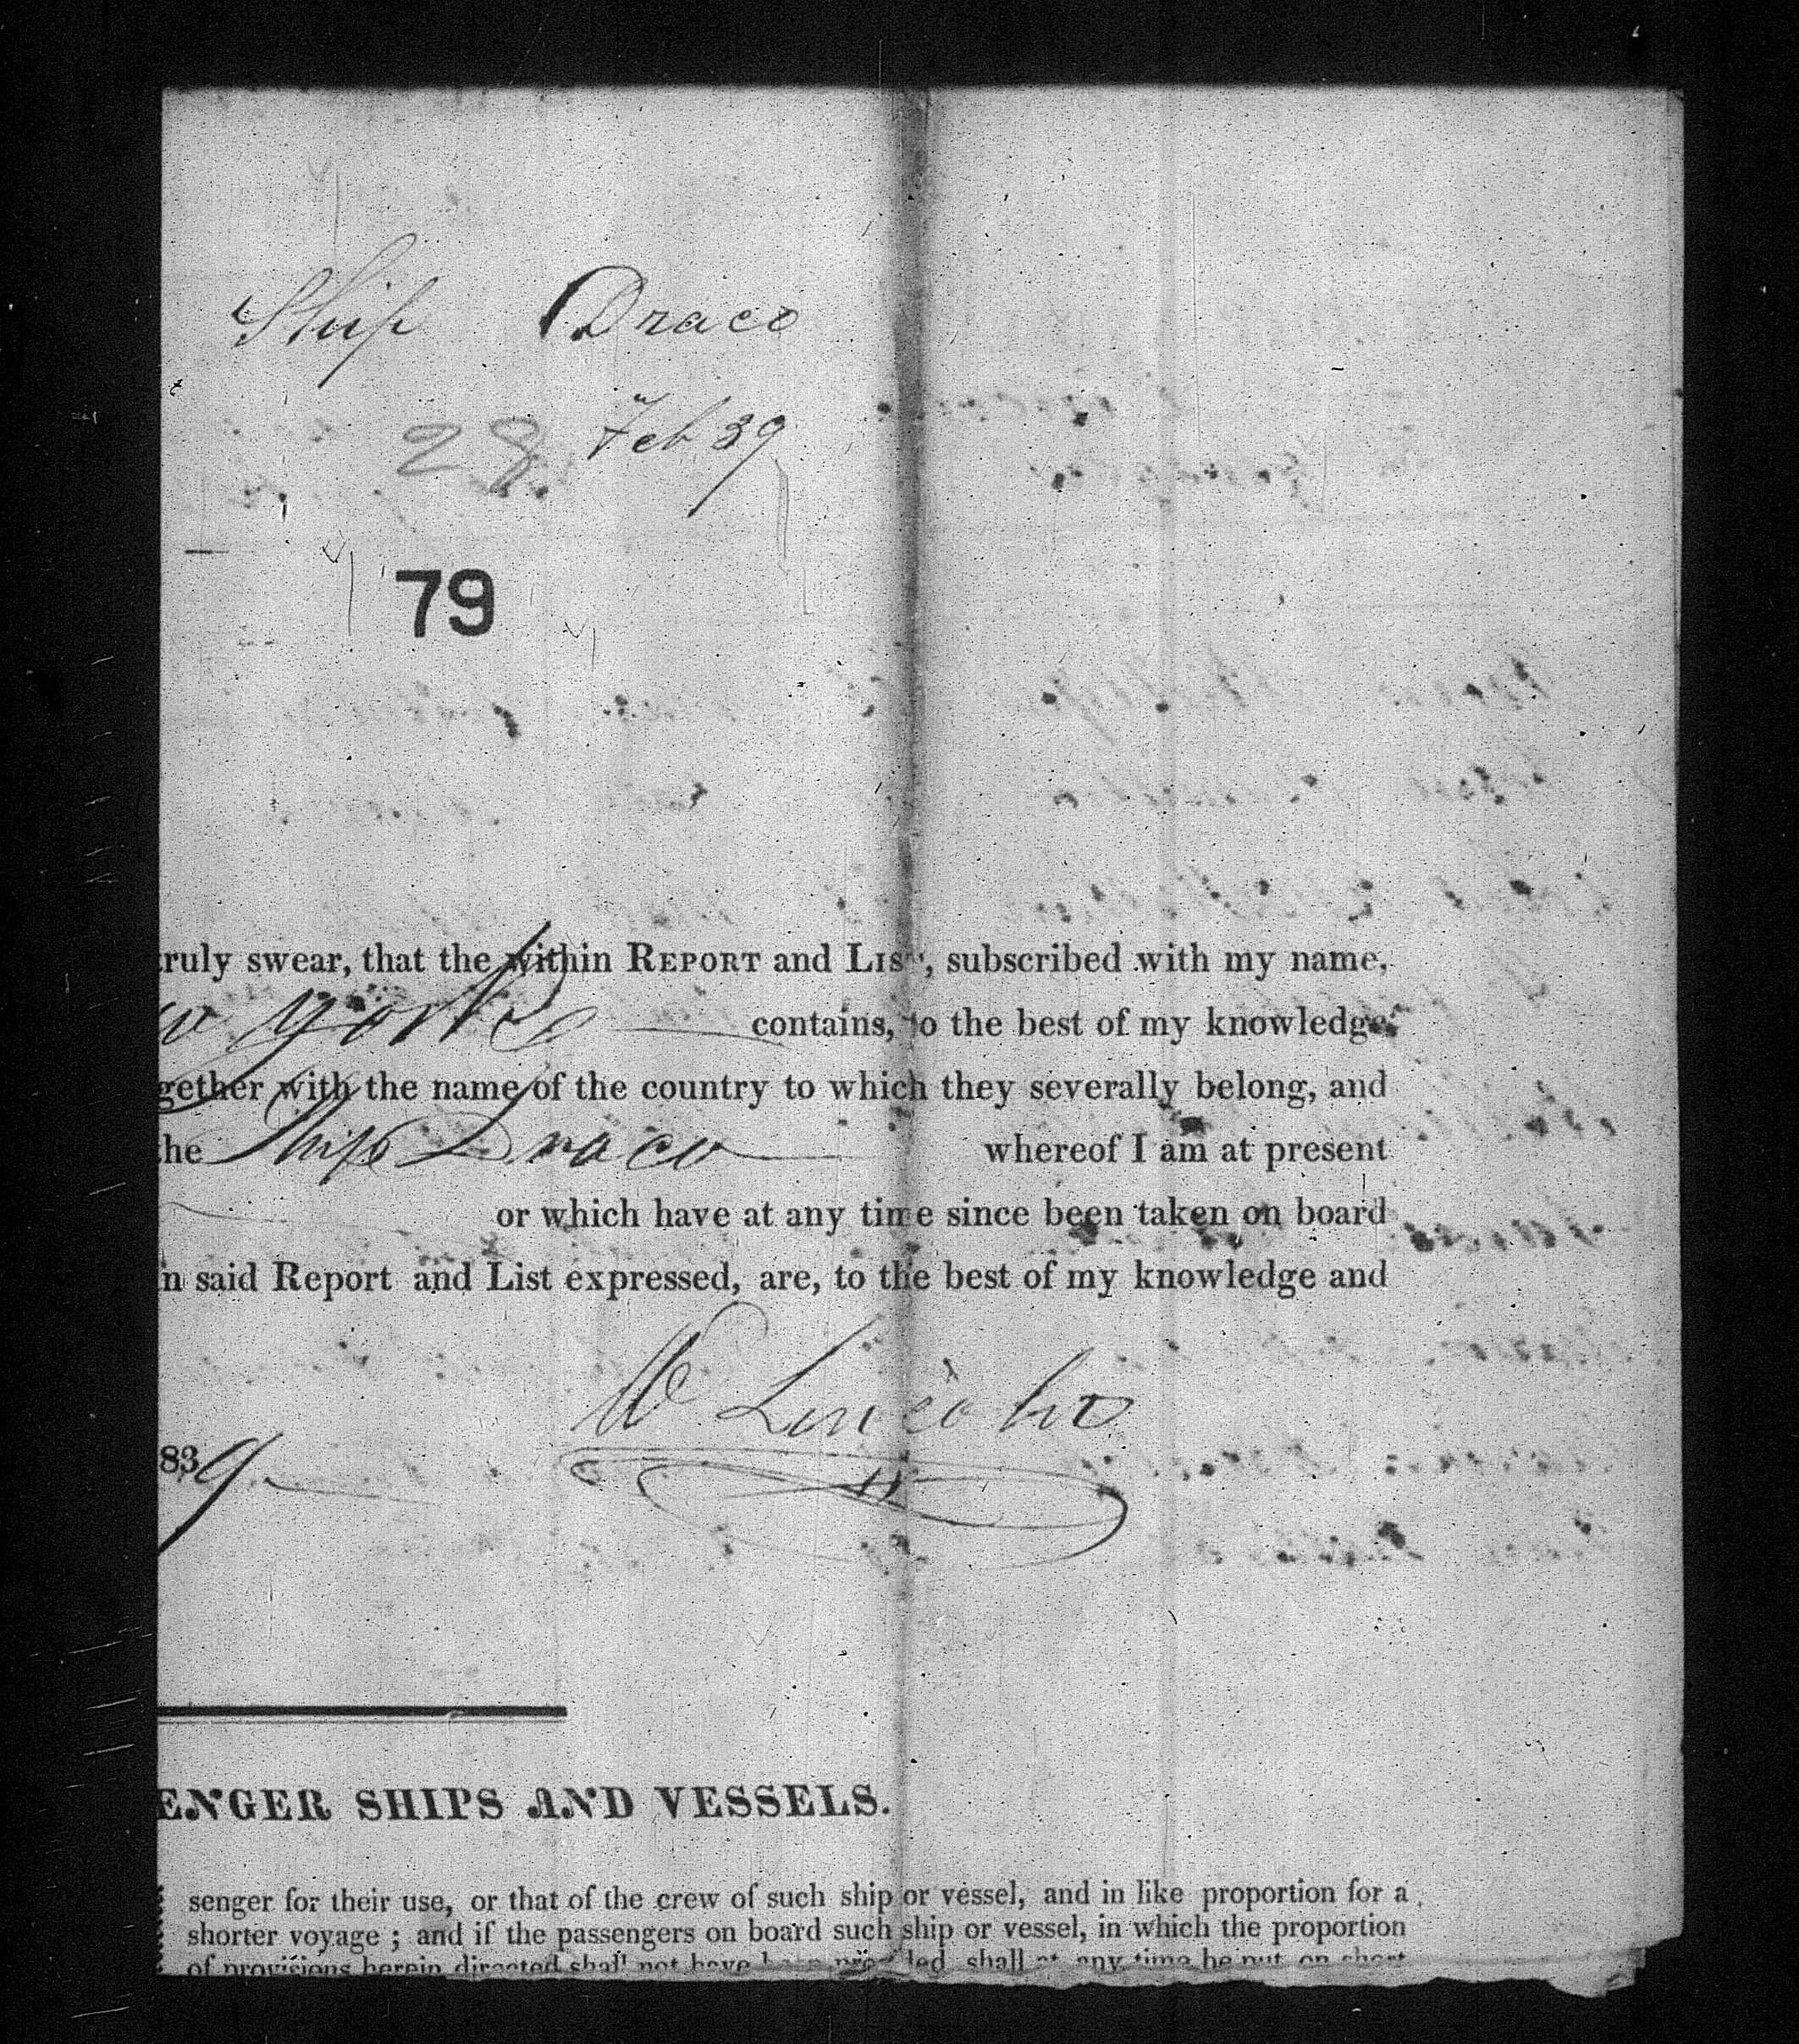 Ship Draco
28 Feb 39
79
truly swear, that the within REPORT and LIST, subscribed with my name,
w York contains, to the best of my knowledge
gether with the name of the country to which they severally belong, and
the Ship Draco whereof I am at present
or which have at any time since been taken on board
n said Report and List expressed, are, to the best of my knowledge and
W Lincoln
839
ENGER SHIPS AND VESSELS.
senger for their use, or that of the crew of such ship or vessel, and in like proportion for a
shorter voyage ; and if the passengers on board such ship or vessel, in which the proportion
of provisions herein directed shall not have been provided, shall at any time be put on short